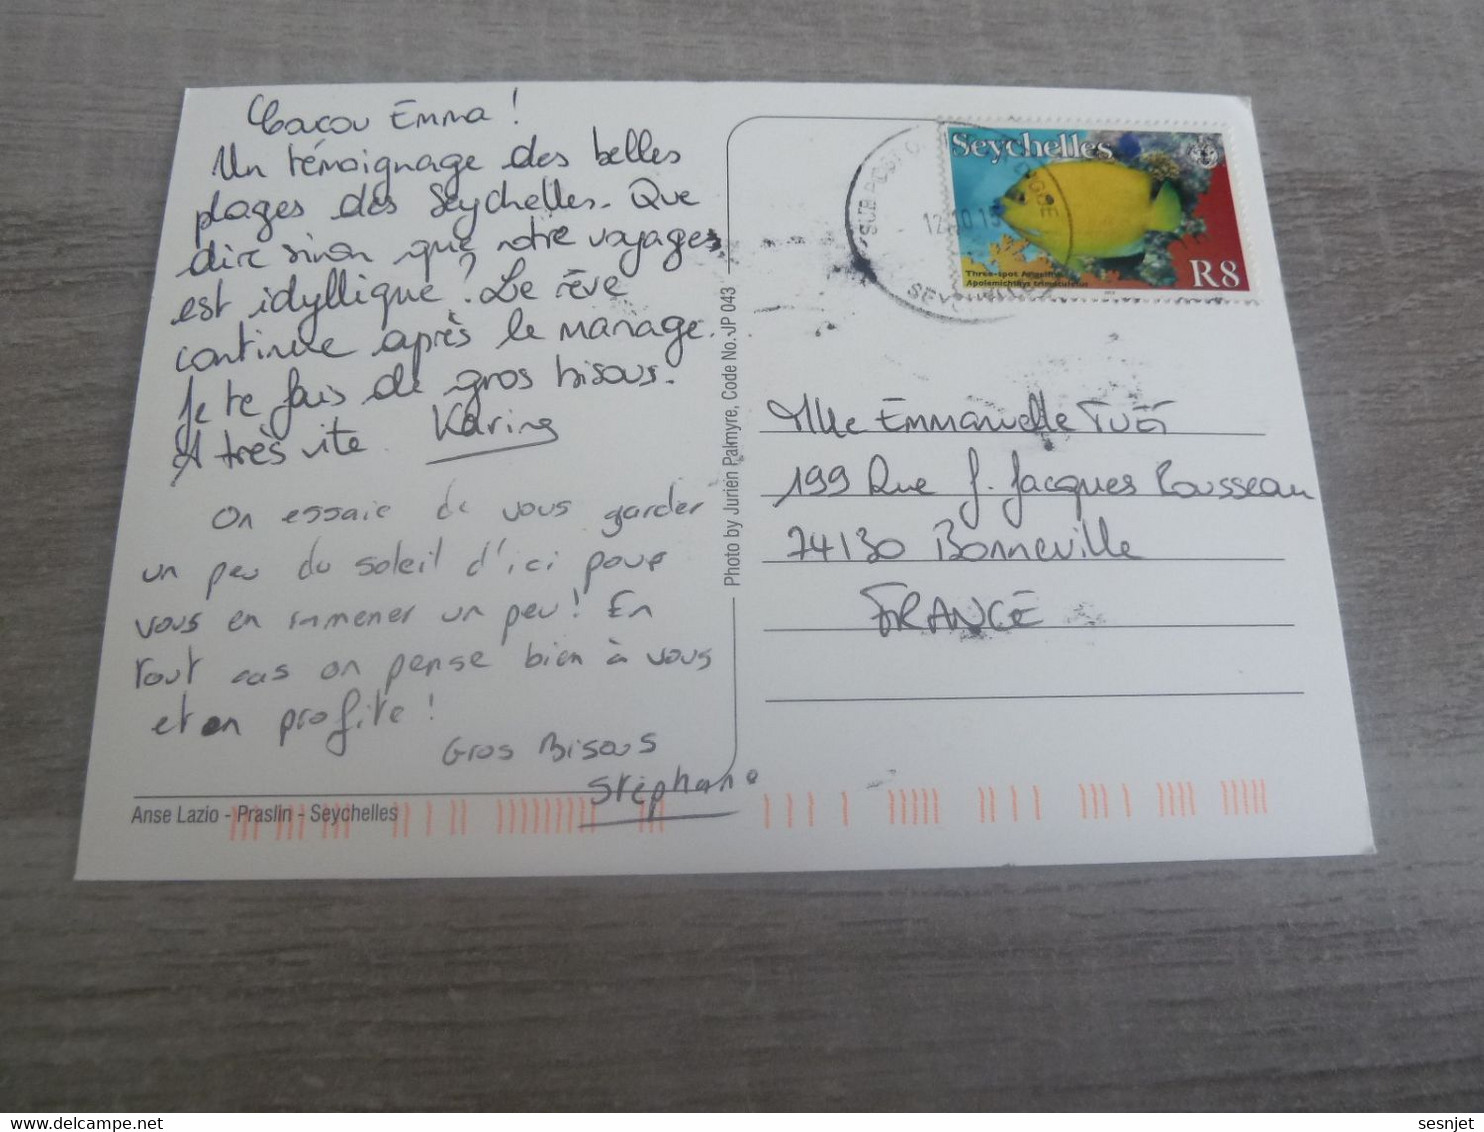 Coucou Emma !
Un témoignage des belles
plages des Seychelles. Que
dire sinon que notre voyage
est idyllique ? Le rêve
continue après le mariage.
Je te fais de gros bisous.
A très vite Karine
On essaie de vous garder
un peu du soleil d'ici pour
vous en ramener un peu ! En
tout cas on pense bien à vous
et on profite !
Gros Bisous
Stéphane
Anse Lazio - Praslin - Seychelles
Photo by Jurien Palmyre, Code No. JP 043
SUB POST O
12.10.15
SEYCHELLES
Seychelles
Three-spot Angelfish
Apolemichthys trimaculatus
R8
Mlle Emmanuelle
199 Rue J. Jacques Rousseau
74130 Bonneville
FRANCE
sesnjet